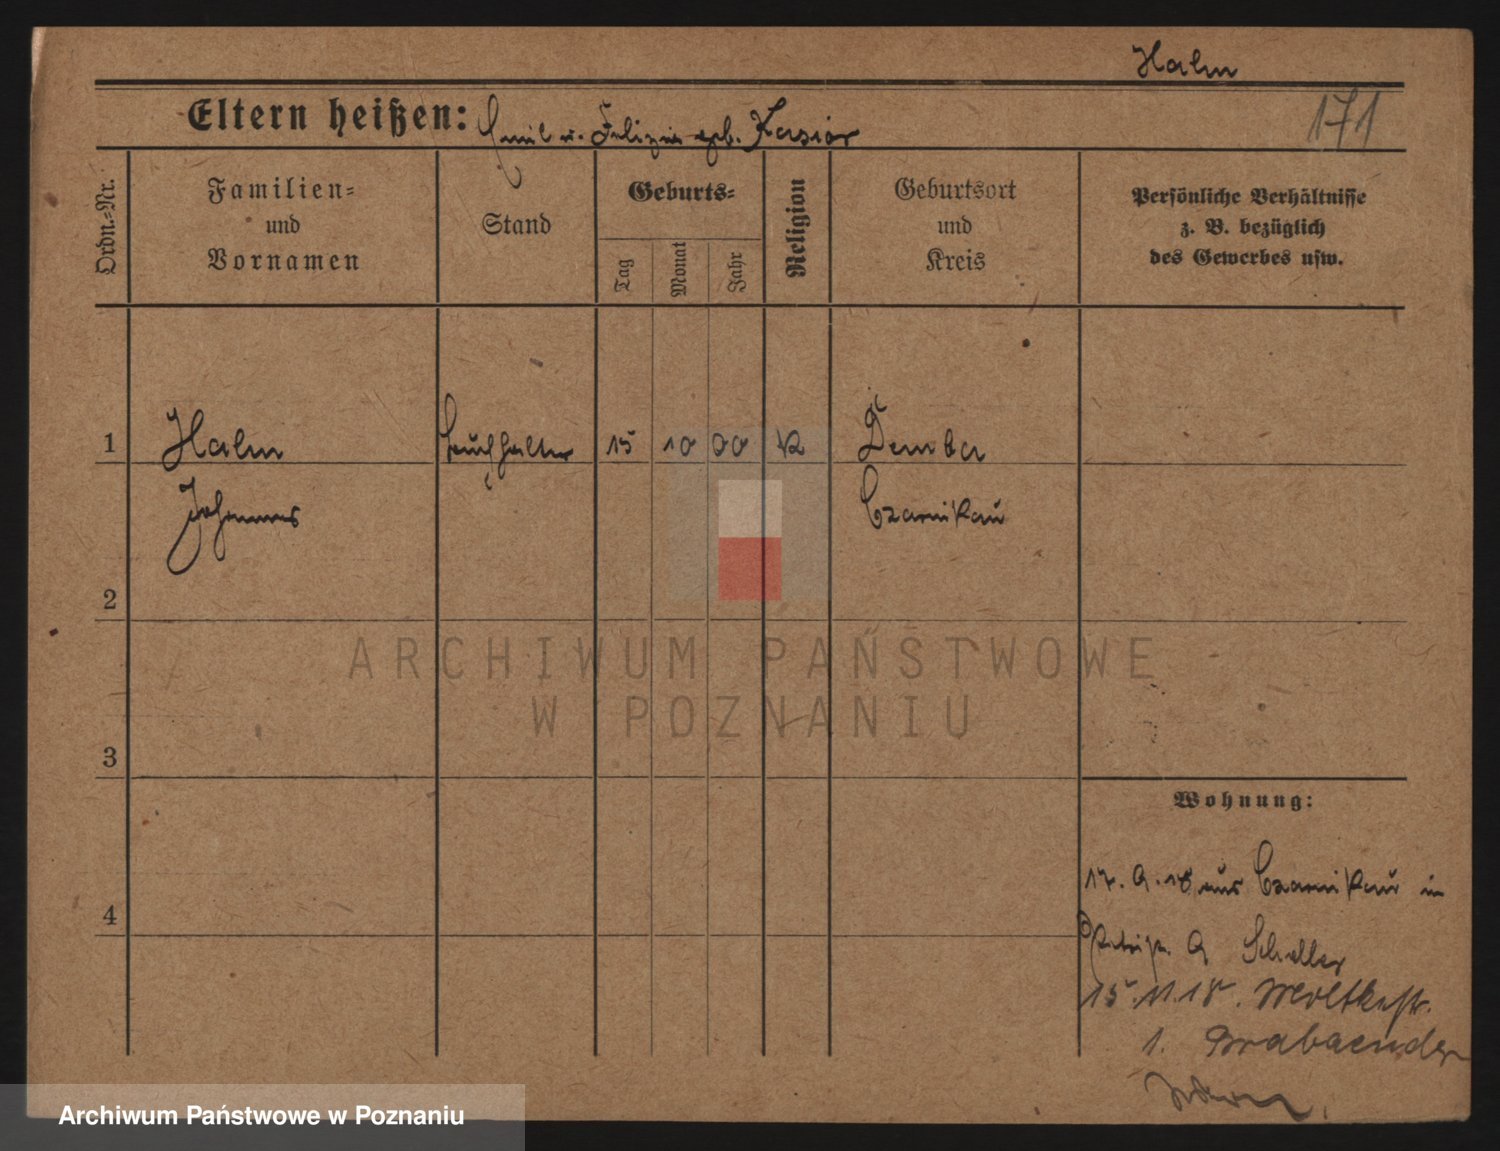 Halm
Eltern heißen: Emil u. Felizia geb. Kasior
171
Ordn.=Nr.
Familien=
und
Vornamen
Stand
Geburts=
Tag
Monat
Jahr
Religion
Geburtsort
und
Kreis
Persönliche Verhältnisse
z. B. bezüglich
des Gewerbes usw.
1 Halm Buchhalter 15 10 00 K Demba
Johannes Czarnikau
2
ARCHIWUM PAŃSTWOWE
W POZNANIU
3
Wohnung:
17. 9. 18 aus Czarnikau in
4
9 Scheller
15.11.18. Moltkestr.
1. Brabaender
Archiwum Państwowe w Poznaniu